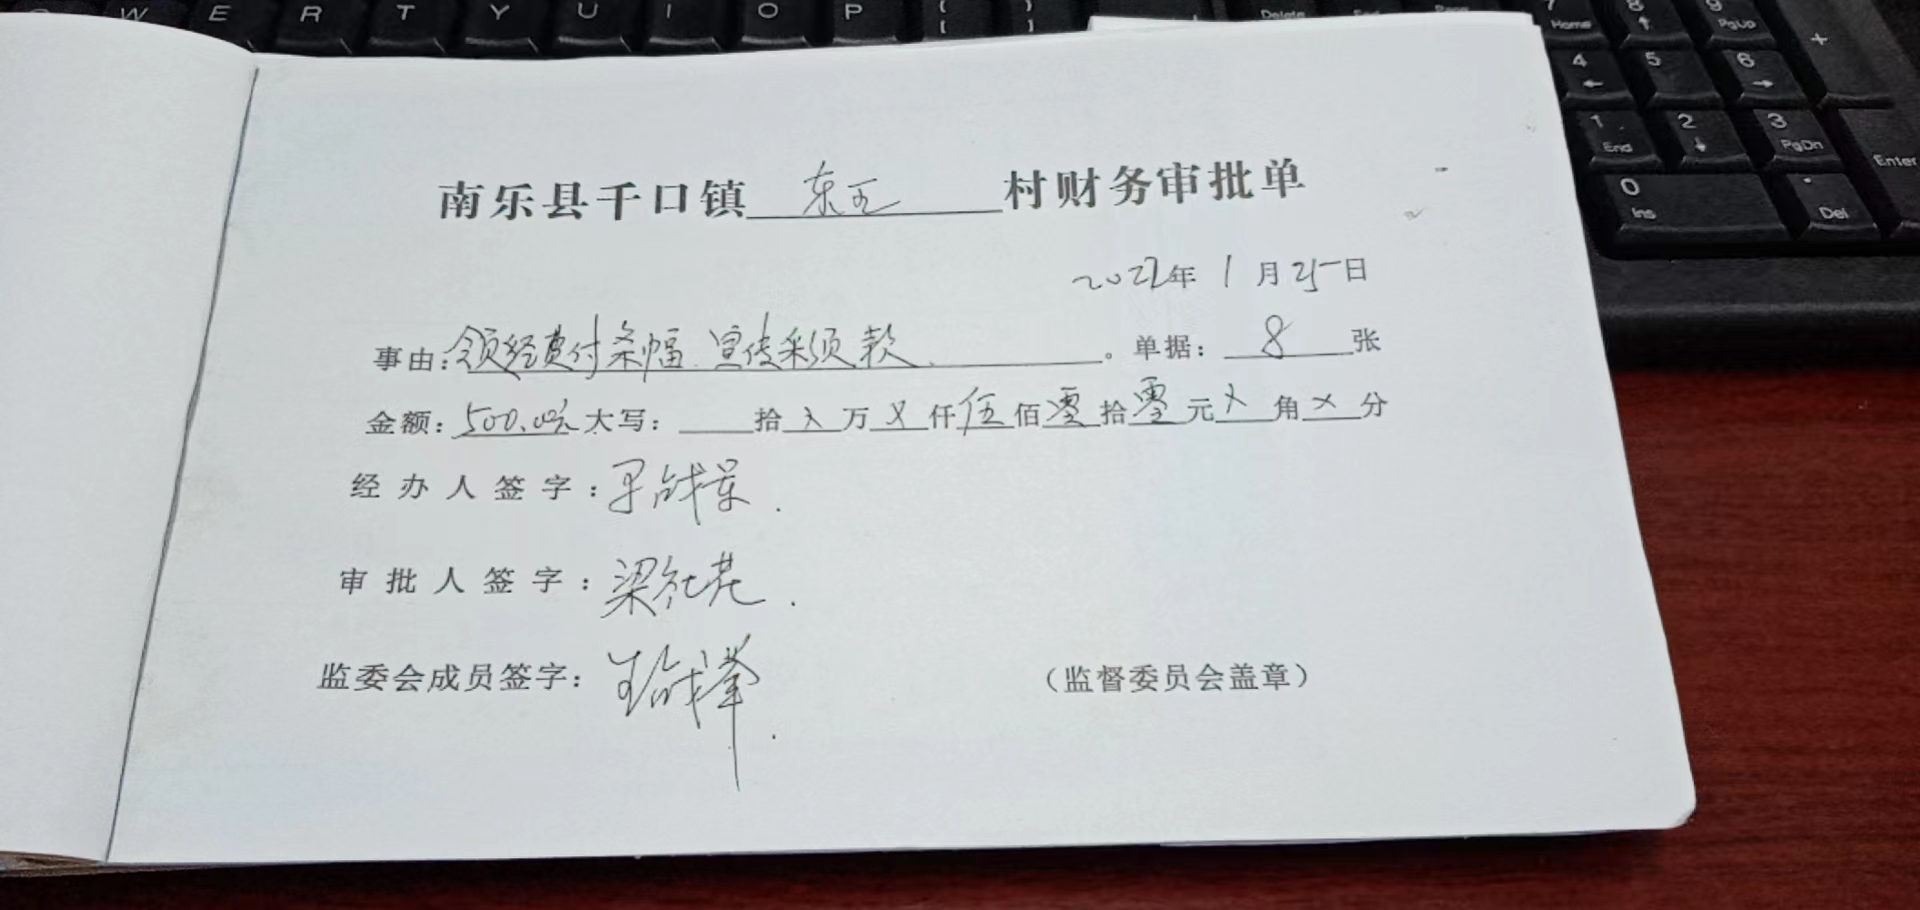 W E R T Y U I O P
Delete
7 Home 8 9 PgUp +
4 5 6
1 End 2 3 PgDn
Enter
0 Ins . Del
南乐县千口镇 东王 村财务审批单
2022年1月25日
事由:领经费付条幅.宣传 款. 。单据: 8 张
金额:500.00元 大写: 拾 X 万 X 仟 伍 佰 零 拾 零 元 X 角 X 分
经办人签字:
审批人签字:梁
监委会成员签字:王
(监督委员会盖章)